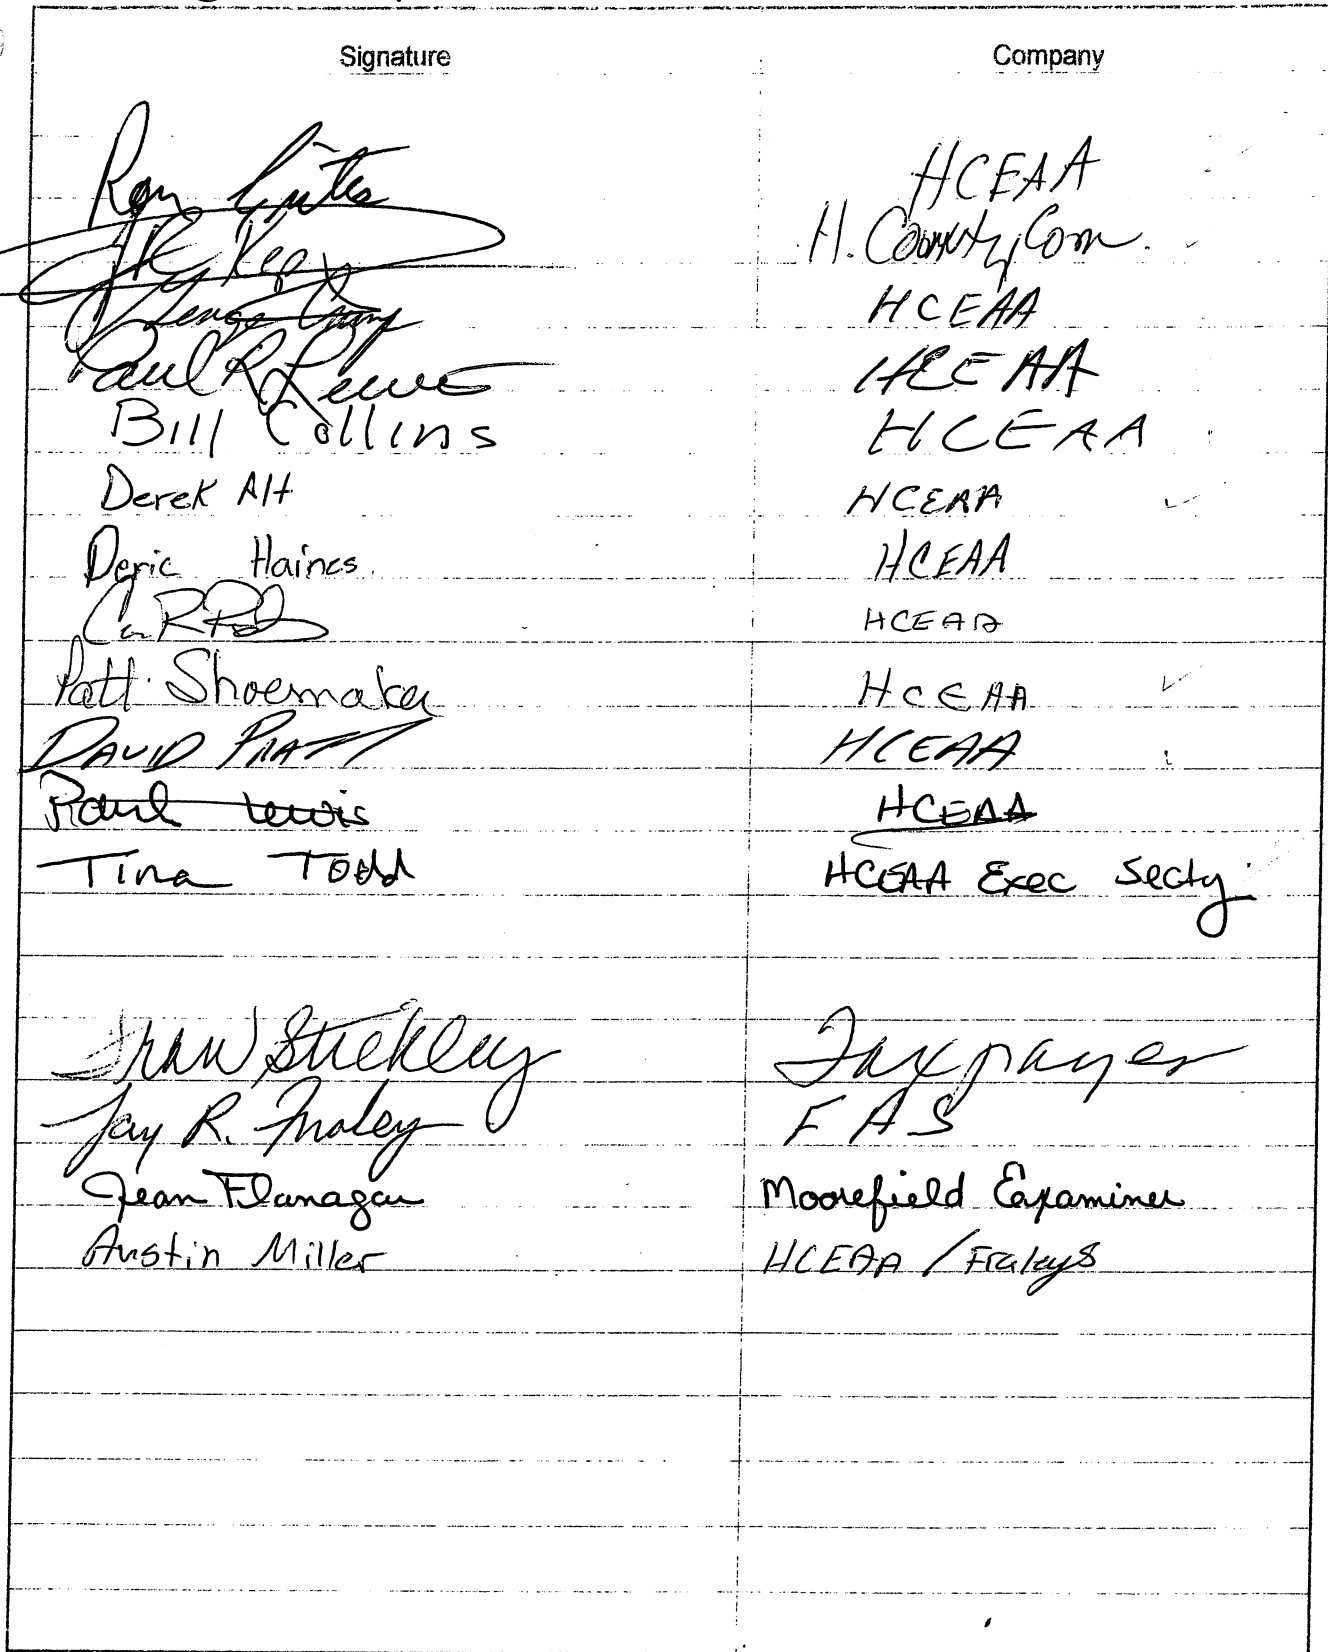 Signature Company
Ron HCEAA
H. County Com.
George HCEAA
Paul R Lewis HCEAA
Bill Collins HCEAA
Derek Alt HCEAA
Deric Haines HCEAA
HCEAA
Patt Shoemaker HCEAA
DAVID PRATT HCEAA
Paul Lewis HCEAA
Tina Todd HCEAA Exec Secty.
Stickley Taxpayer
Jay R. Fraley FAS
Jean Flanagan Moorefield Examiner
Austin Miller HCEAA / Fraleys